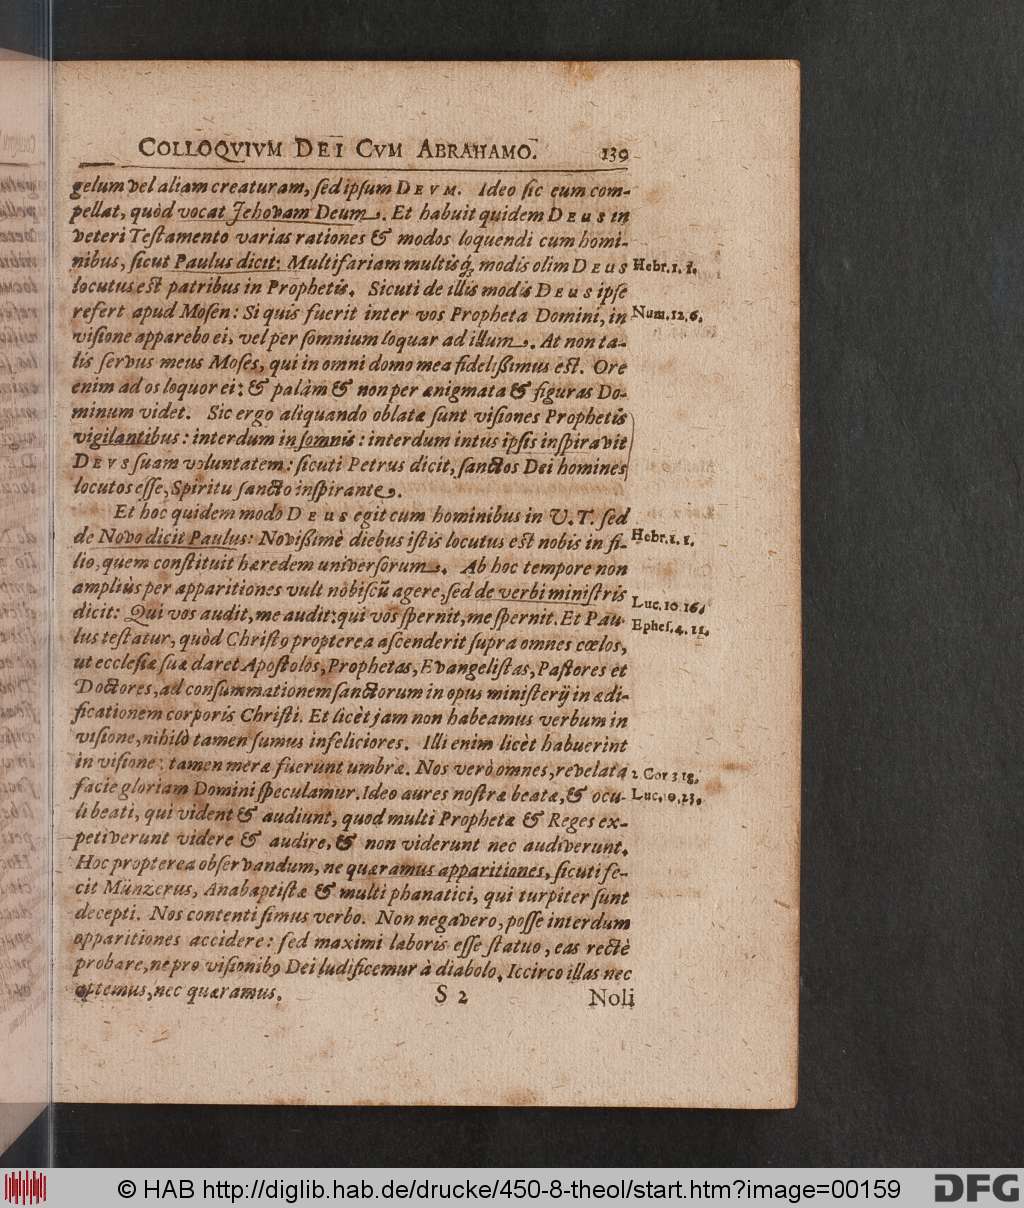 COLLOQVIVM DEI CVM ABRAHAMO. 139
gelum vel aliam creaturam, sed ipsum DEVM. Ideo sic eum com-
pellat, quòd vocat Jehovam Deum. Et habuit quidem DEUS in
veteri Testamento varias rationes & modos loquendi cum homi-
nibus, sicut Paulus dicit: Multifariam multisq́; modis olim DEUS Hebr. 1. 1.
locutus est patribus in Prophetis. Sicuti de illis modis DEUS ipse
refert apud Mosen: Si quis fuerit inter vos Propheta Domini, in Num. 12, 6.
visione apparebo ei, vel per somnium loquar ad illum. At non ta-
lis servus meus Moses, qui in omni domo mea fidelißimus est. Ore
enim ad os loquor ei: & palàm & non per ænigmata & figuras Do-
minum videt. Sic ergo aliquando oblatæ sunt visiones Prophetis
vigilantibus: interdum in somnis: interdum intus ipsis inspiravit
DEVS suam voluntatem: sicuti Petrus dicit, sanctos Dei homines
locutos esse, Spiritu sancto inspirante.
Et hoc quidem modo DEUS egit cum hominibus in V. T. sed
de Novo dicit Paulus: Novißimè diebus istis locutus est nobis in fi- Hebr. 1. 1.
lio, quem constituit hæredem universorum. Ab hoc tempore non
ampliùs per apparitiones vult nobiscũ agere, sed de verbi ministris
dicit: Qui vos audit, me audit: qui vos spernit, me spernit. Et Pau- Luc. 10. 16.
lus testatur, quòd Christꝰ propterea ascenderit supra omnes cœlos, Ephes. 4. 11.
ut ecclesiæ suæ daret Apostolos, Prophetas, Evangelistas, Pastores et
Doctores, ad consummationem sanctorum in opus ministerij in ædi-
ficationem corporis Christi. Et licèt jam non habeamus verbum in
visione, nihilò tamen sumus infeliciores. Illi enim licèt habuerint
in visione: tamen meræ fuerunt umbræ. Nos verò omnes, revelata 2. Cor 3 18.
facie gloriam Domini speculamur. Ideo aures nostræ beatæ, & ocu- Luc. 10. 23.
li beati, qui vident & audiunt, quod multi Prophetæ & Reges ex-
petiverunt videre & audire, & non viderunt nec audiverunt.
Hoc propterea observandum, ne quæramus apparitiones, sicuti fe-
cit Münzerus, Anabaptistæ & multi phanatici, qui turpiter sunt
decepti. Nos contenti simus verbo. Non nega vero, posse interdum
apparitiones accidere: sed maximi laboris esse statuo, eas rectè
probare, ne pro visionibꝰ Dei ludificemur à diabolo. Iccirco illas nec
optemus, nec quæramus. S 2 Noli
© HAB http://diglib.hab.de/drucke/450-8-theol/start.htm?image=00159 DFG